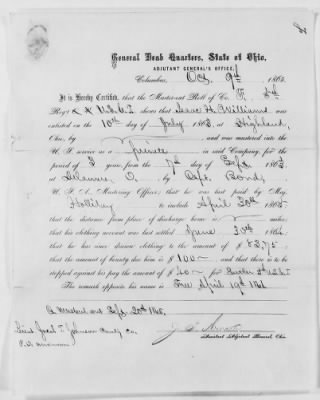 General Head Quarters, State of Ohio,
ADJUTANT GENERAL'S OFFICE,
Columbus, Oct 9th 1865.
It is Hereby Certified, that the Muster-out Roll of Co. F. 5th
Reg't U.S.C.T. shows that Isaac H. Williams was
enlisted on the 10th day of July 1863, at Highland,
Ohio, by and was mustered into the
U. S. service as a private in said Company, for the
period of 3 years, from the 7th day of Sept 1863
at Delaware, O. by Capt. Bond,
U. S. A., Mustering Officer; that he was last paid by Maj.
Holliday to include April 30th 1865
that the distance from place of discharge home is miles;
that his clothing account was last settled June 30th 1864
that he has since drawn clothing to the amount of $ 83,75
that the amount of bounty due him is $ 100 and that there is to be
stopped against his pay the amount of $ for
The remark opposite his name is Free April 19th 1861
Mustered out Sept. 20th 1865,
Assistant Adjutant General, Ohio.